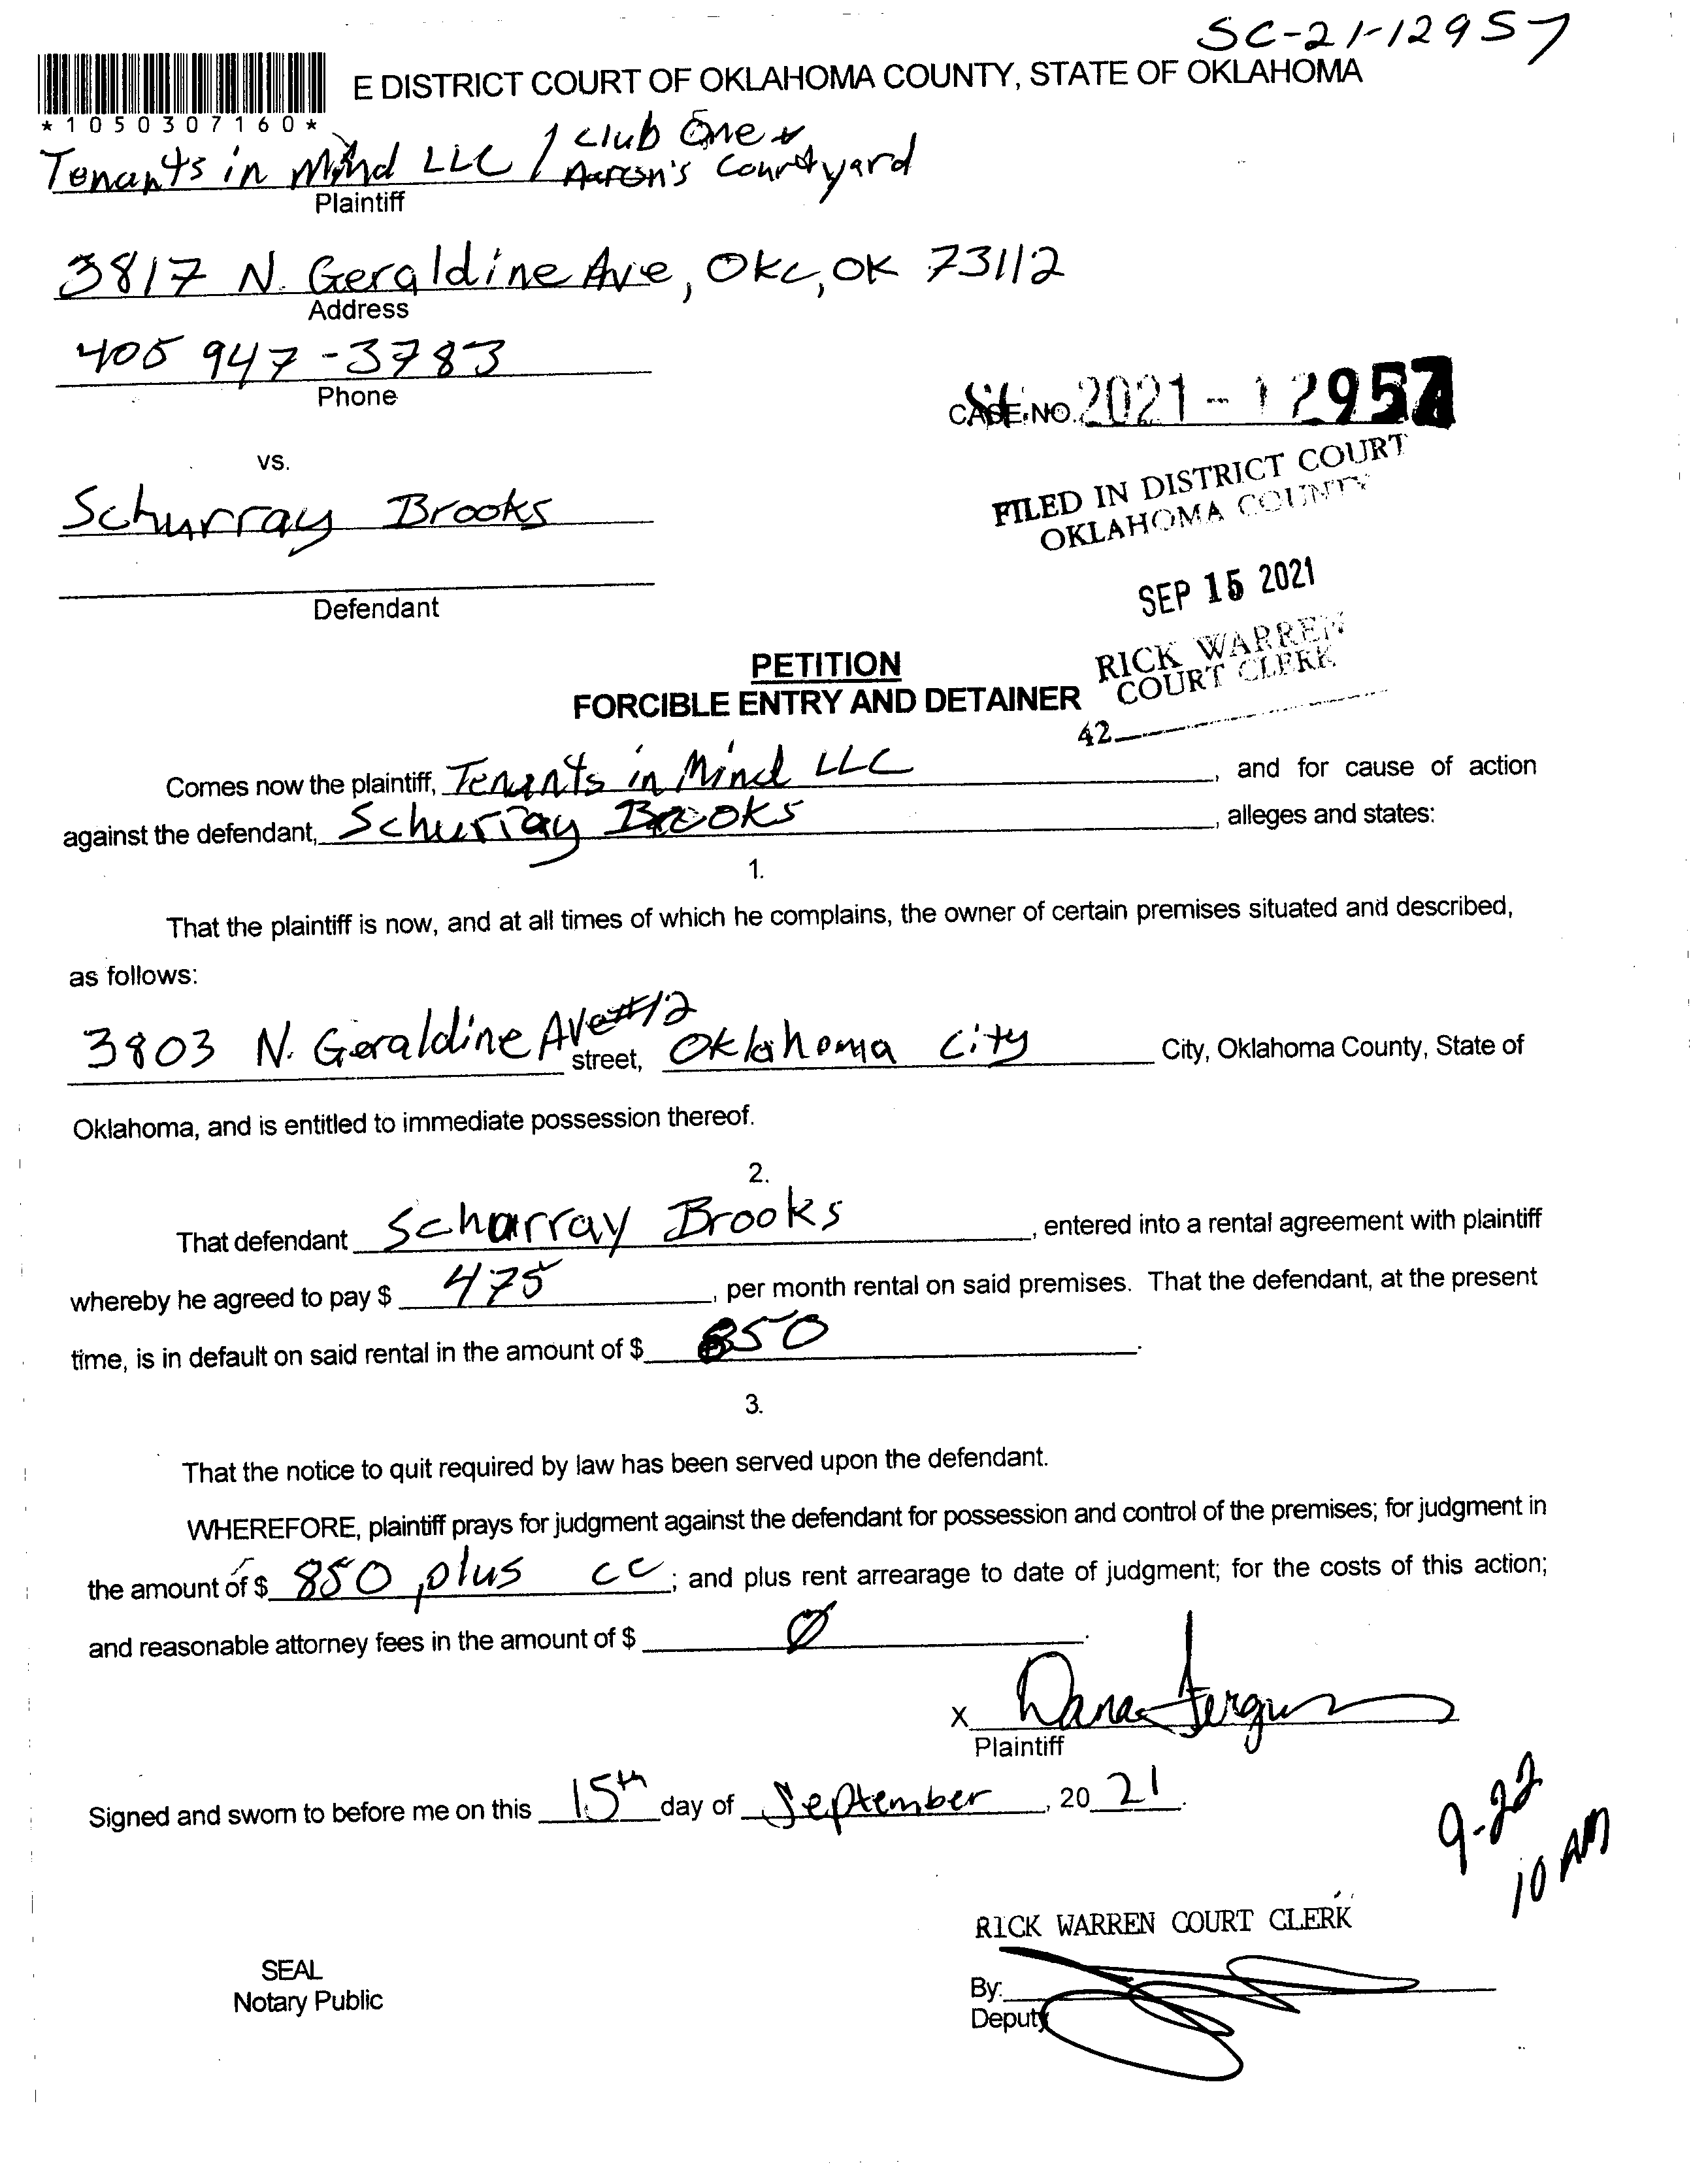 SC-21-12957
E DISTRICT COURT OF OKLAHOMA COUNTY, STATE OF OKLAHOMA
*1050307160*
Tenants in Mind LLC / Club One &
Aaron's Courtyard
Plaintiff
3817 N. Geraldine Ave, OKC, OK 73112
Address
405 947-3783
Phone
CASE NO. 2021-12957
vs.
FILED IN DISTRICT COURT
OKLAHOMA COUNTY
Schurray Brooks
SEP 15 2021
Defendant
RICK WARREN
COURT CLERK
42
PETITION
FORCIBLE ENTRY AND DETAINER
Comes now the plaintiff, Tenants in Mind LLC, and for cause of action
against the defendant, Schurray Brooks, alleges and states:
1.
That the plaintiff is now, and at all times of which he complains, the owner of certain premises situated and described,
as follows:
3803 N. Geraldine Ave #12 street, Oklahoma City City, Oklahoma County, State of
Oklahoma, and is entitled to immediate possession thereof.
2.
That defendant Scharray Brooks, entered into a rental agreement with plaintiff
whereby he agreed to pay $ 475, per month rental on said premises. That the defendant, at the present
time, is in default on said rental in the amount of $ 850.
3.
That the notice to quit required by law has been served upon the defendant.
WHEREFORE, plaintiff prays for judgment against the defendant for possession and control of the premises; for judgment in
the amount of $ 850, plus CC; and plus rent arrearage to date of judgment; for the costs of this action;
and reasonable attorney fees in the amount of $ Ø.
X Dana Ferguson
Plaintiff
Signed and sworn to before me on this 15th day of September, 20 21.
9-22
10 AM
RICK WARREN COURT CLERK
SEAL
Notary Public
By:
Deputy